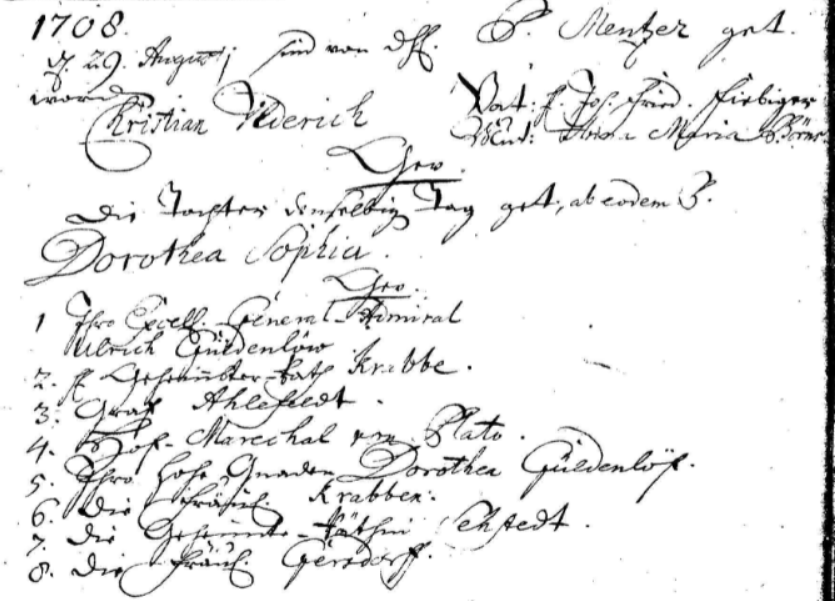 1708.
d. 29. August, sind von P. Mentzer get.
worden
Christian Vlderich
Vat: H. Joh. Fried. Fiebiger
Mut: Maria
Gev.
Die Tochter denselbig Tag get., ab eodem P.
Dorothea Sophia.
Gev.
1 Ihro Excell. General-Admiral
Ulrich Güldenlöw
2. H. Geheimbter-Rath Krabbe.
3. Graf Ahlefeldt.
4. Hof-Marechal von Plato.
5. Ihro Hohe Gnaden Dorothea Güldenlöw.
6. Die Fräul. Krabben.
7. Die Geheimte-Räthin Sehstedt.
8. Die Fräul. Gersdorff.